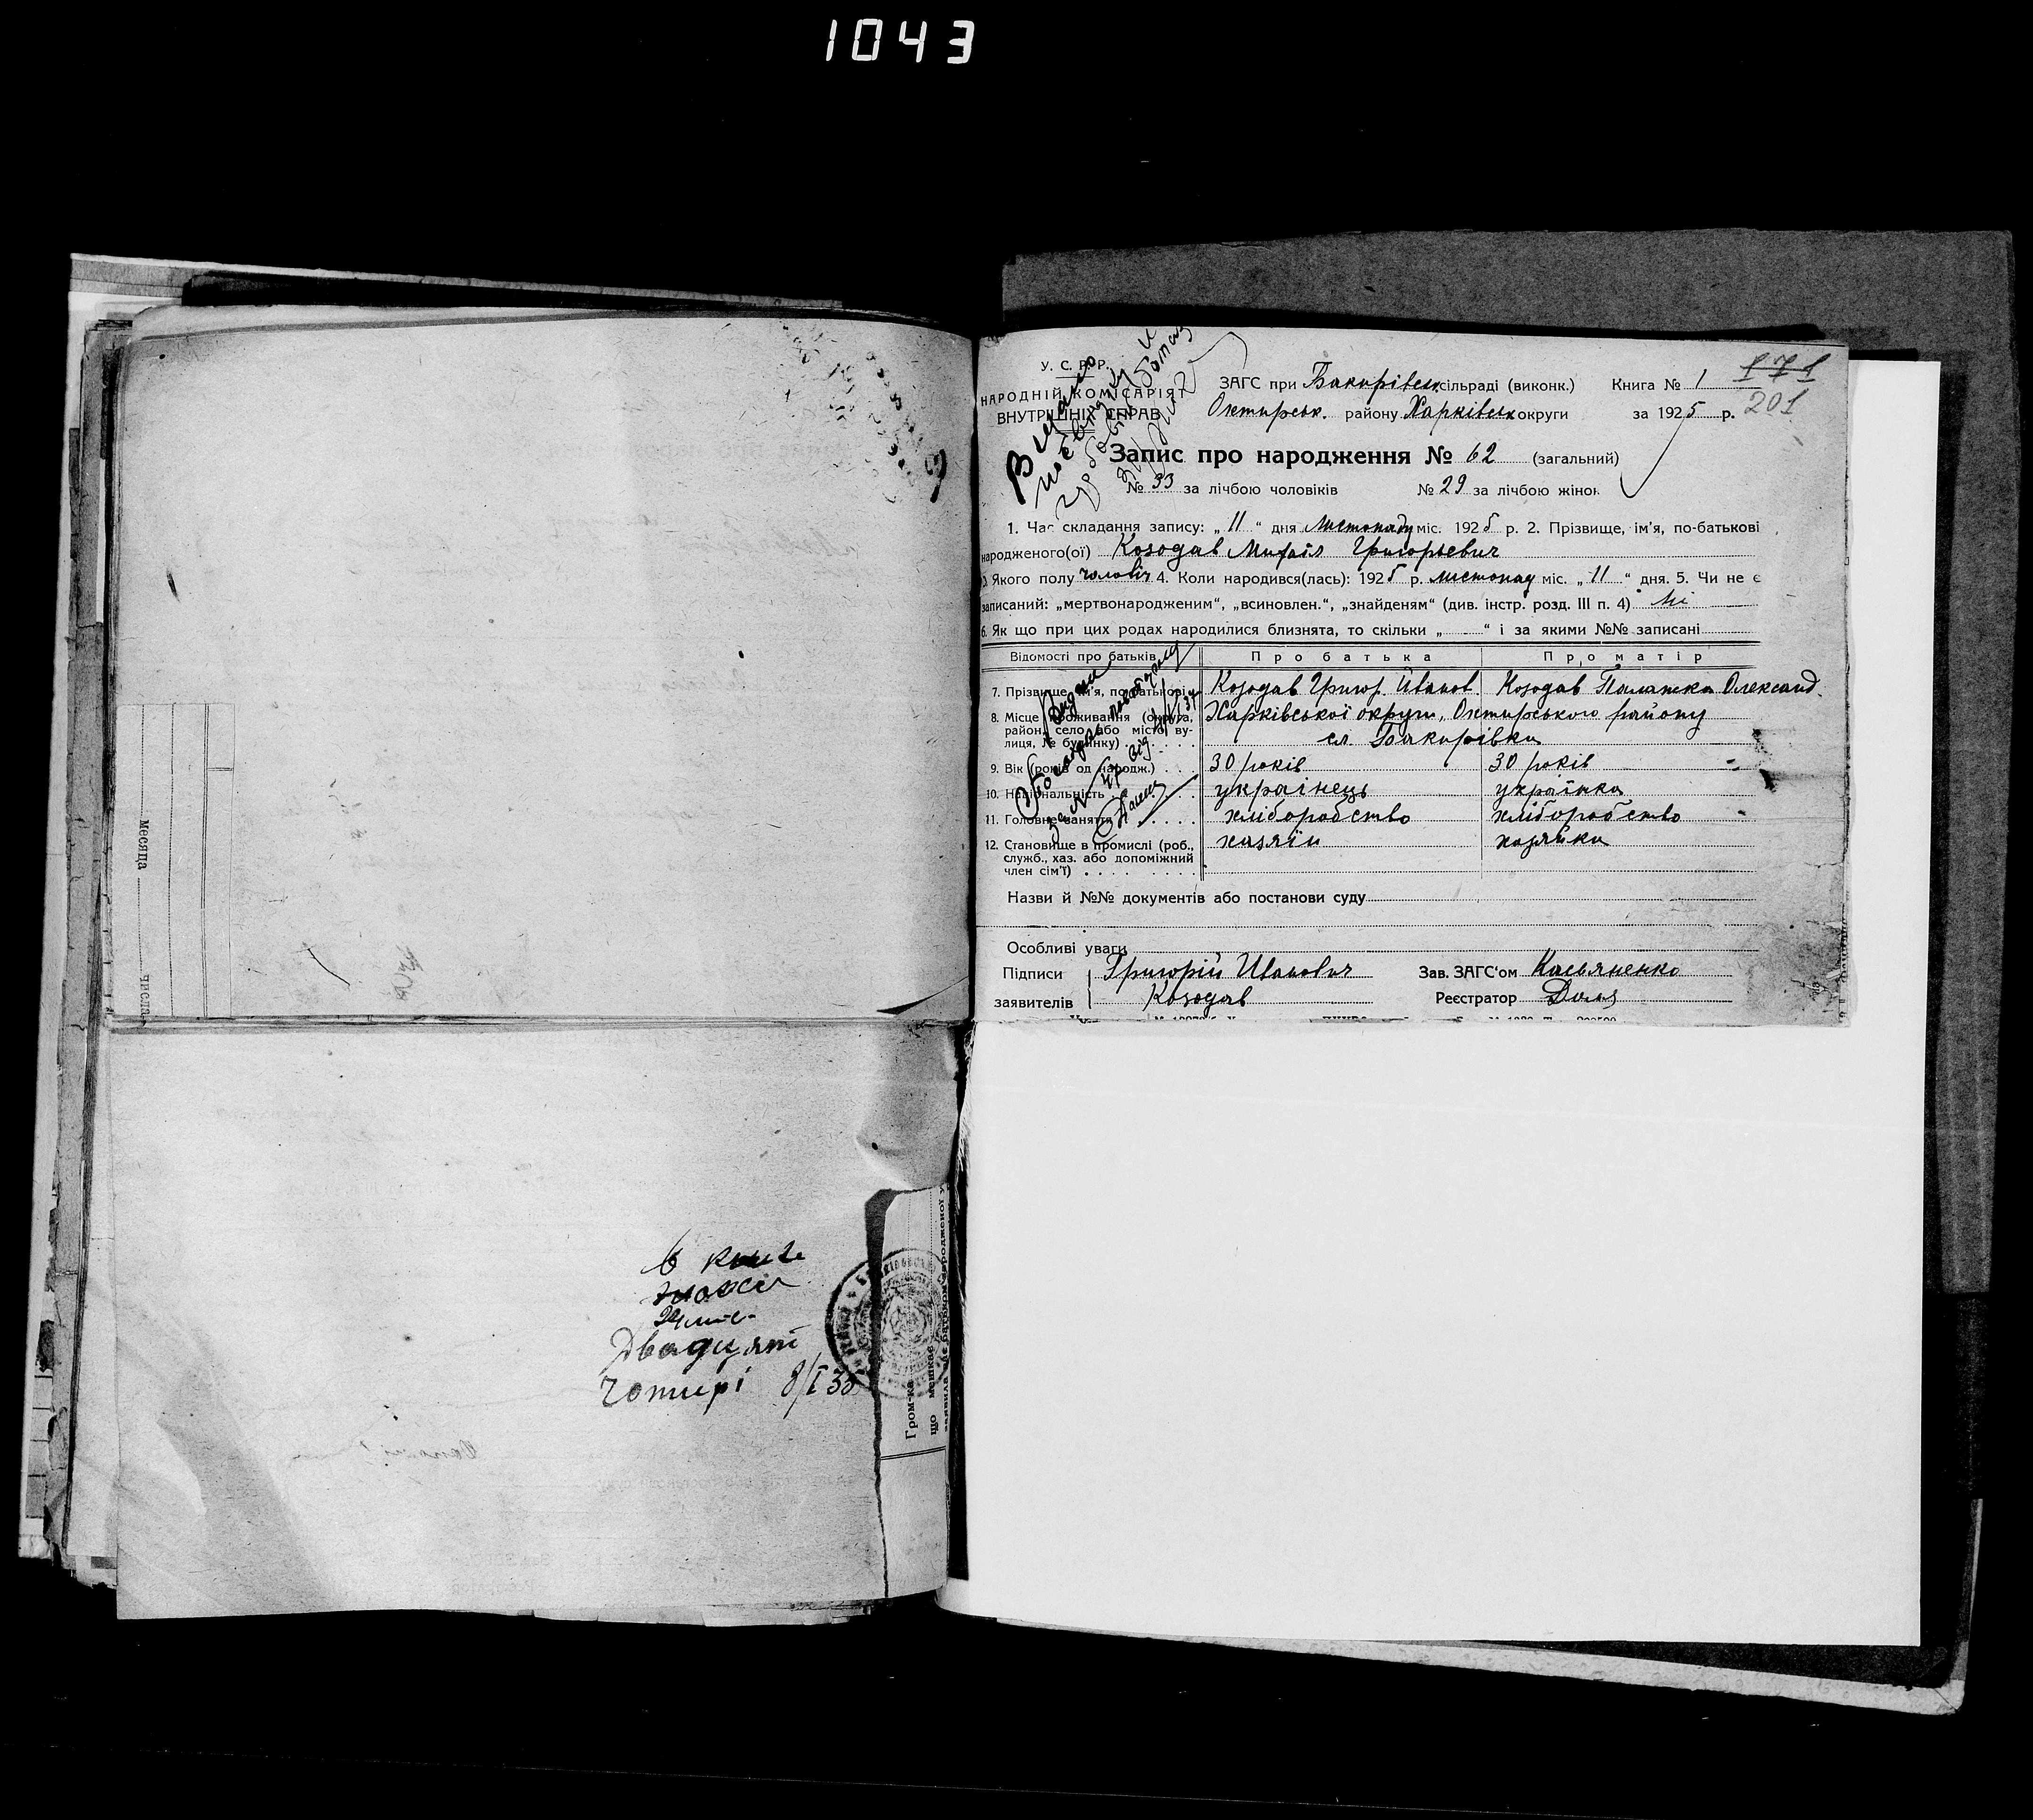 1043
У. С. Р. Р.
НАРОДНІЙ КОМІСАРІЯТ
ВНУТРІШНІХ СПРАВ
ЗАГС при Бакирівськ. сільраді (виконк.) Книга № 1
171
Охтирськ. району Харківськ округи за 1925 р. 201
Запис про народження № 62 (загальний)
№ 33 за лічбою чоловіків № 29 за лічбою жінок
1. Час складання запису: „ 11 “ дня Листопаду міс. 1925 р. 2. Прізвище, ім’я, по-батькові
народженого(ої) Козодав Михаіл Григорьевич
3. Якого полу чоловіч 4. Коли народився(лась): 1925 р. листопад міс. „ 11 “ дня. 5. Чи не є
записаний: „мертвонародженим“, „всиновлен.“, „знайденям“ (див. інстр. розд. III п. 4) Ні
6. Як що при цих родах народилися близнята, то скільки „ “ і за якими №№ записані
Відомості про батьків Про батька Про матір
7. Прізвище, ім’я, по-батькові Козодав Григор. Иванов. Козодав Палажка Олександ.
8. Місце проживання (округа, район, село або місто, вулиця, № будинку) Харківської округи, Охтирського району
сл. Бакирівка
9. Вік (років од народж.) 30 років 30 років
10. Національність українець українка
11. Головне заняття хліборобство хліборобство
12. Становище в промислі (роб., хазяїн хазяйка
служб., хаз. або допоміжний
член сім’ї)
Назви й №№ документів або постанови суду
Особливі уваги
Підписи Григорій Иванович Зав. ЗАГС‘ом Касьяненко
заявителів Козодав Реєстратор
Видано
месяца числа
в
Двадцят
Чотирі 8/I 35
Гром-ка
що мешкає